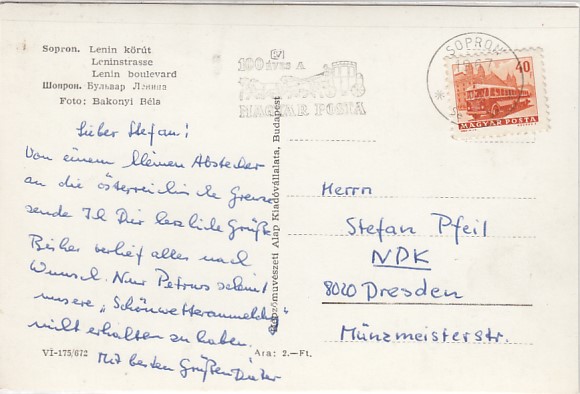 Sopron. Lenin körút
Leninstrasse
Lenin boulevard
Шопрон. Бульвар Ленина
Foto: Bakonyi Béla
100 ÉVES A
MAGYAR POSTA
SOPRON
1967
40
MAGYAR POSTA
Lieber Stefan!
Von einem kleinen Abstecher
an die österreichische Grenze
sende Ich Dir herzliche Grüße
Bisher verlief alles nach
Wunsch. Nur Petrus scheint
unsere „Schönwetteranmeldung"
nicht erhalten zu haben.
Mit besten Grüßen Dieter
VI-175/672
Ara: 2.-Ft.
Képzőművészeti Alap Kiadóvállalata, Budapest
Herrn
Stefan Pfeil
NDK
8020 Dresden
Münzmeisterstr.